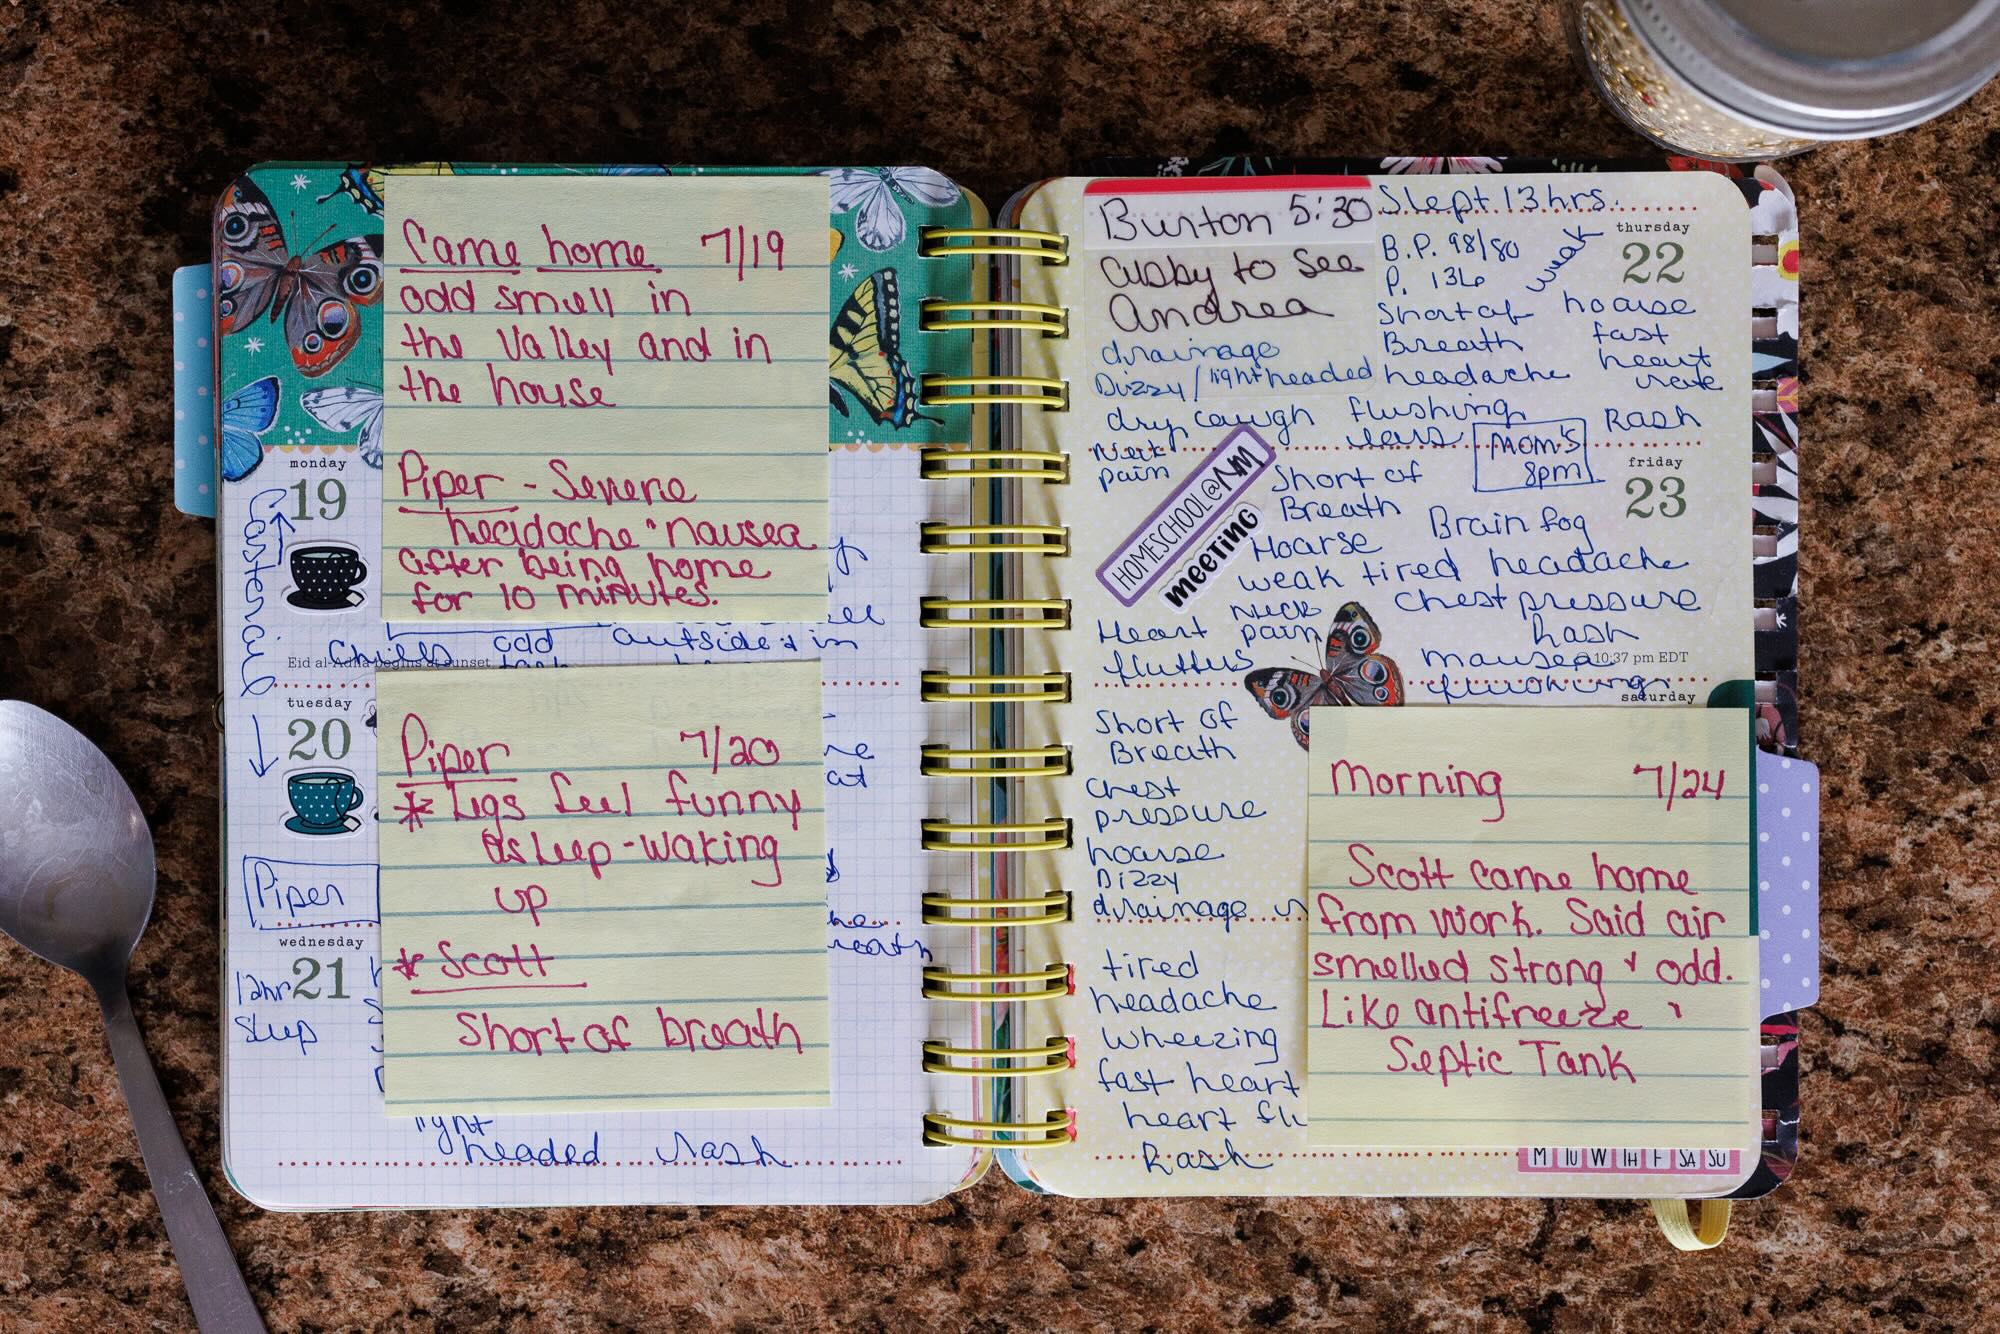 Came home 7/19
odd smell in
the valley and in
the house
Piper - Severe
headache + nausea
after being home
for 10 minutes.
monday
19
Chills odd outside + in
Eid al-Adha begins at sunset
tuesday
20
Piper
Piper 7/20
* Legs feel funny
asleep - waking
up
* Scott
Short of breath
wednesday
21
12hr
sleep
light
headed rash
Burton 5:30
Cusby to see
Andrea
drainage
Dizzy / lightheaded
dry cough flushing
ears
Neck
pain
Slept 13 hrs.
B.P. 98/80
P. 136
weak
Short of
Breath
headache
thursday
22
hoarse
fast
heart
rate
Rash
MOM'S
8pm
HOMESCHOOL@NM
MEETING
friday
23
Short of
Breath
Brain fog
Hoarse
weak tired headache
Neck
pain
chest pressure
Rash
Heart
flutters
nausea
10:37 pm EDT
flushing
saturday
Short of
Breath
chest
pressure
hoarse
Dizzy
drainage
Morning 7/24
Scott came home
from work. Said air
smelled strong + odd.
Like antifreeze +
Septic Tank
tired
headache
wheezing
fast heart
heart
Rash
M TU W TH F SA SU